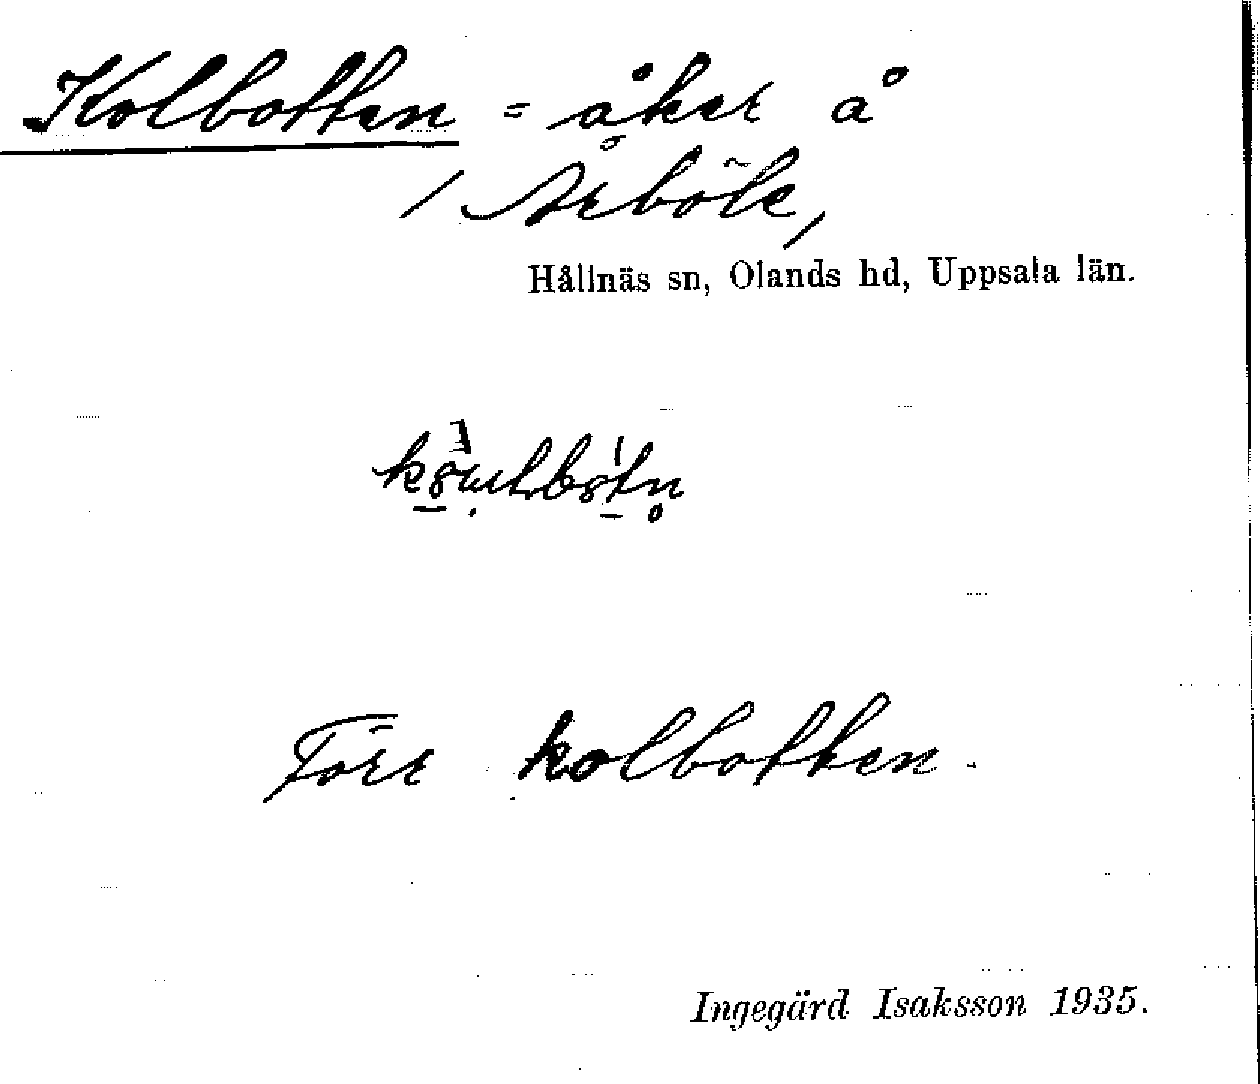 Kolbotten = åker å
/ Årböle,
Hållnäs sn, Olands hd, Uppsala län.
Förr kolbotten.
Ingegärd Isaksson 1935.